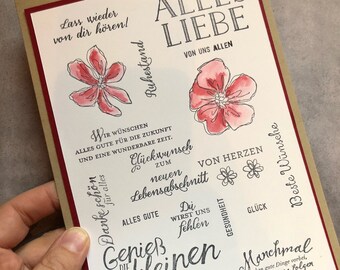 Lass wieder
von dir hören!
ALLES
LIEBE
VON UNS ALLEN
Ruhestand
Wir wünschen
alles Gute für die Zukunft
und eine wunderbare Zeit.
Glückwunsch
ZUM
neuen
Lebensabschnitt
VON HERZEN
Beste Wünsche
Danke schön
für alles
ALLES GUTE
Du
wirst uns
fehlen
GESUNDHEIT
GLÜCK
Genieß
die
kleinen
Manchmal
Dinge
Folgen